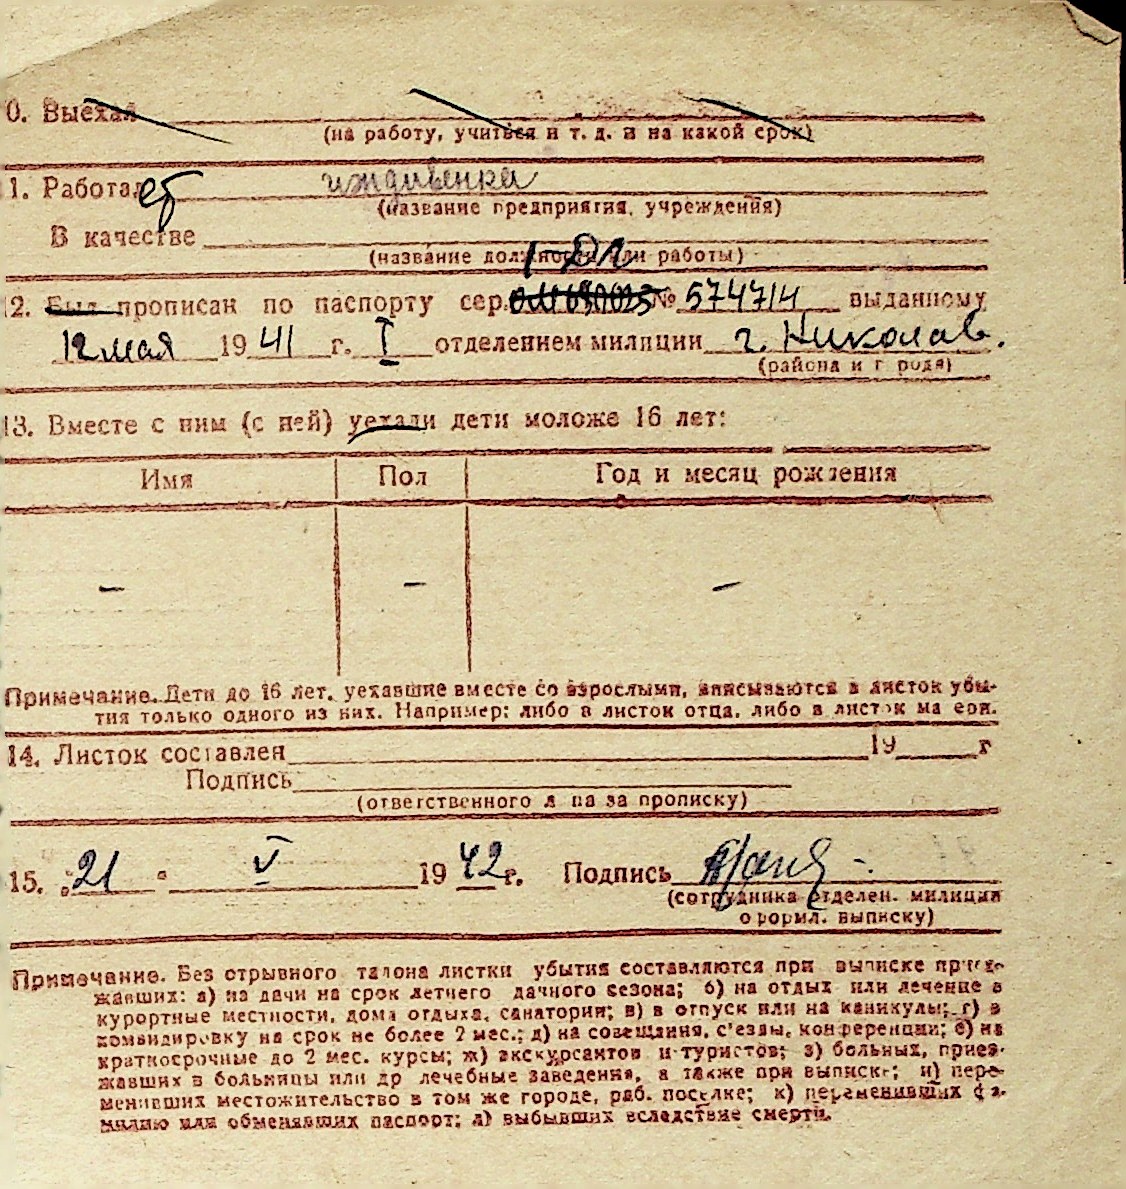 0. Выехал
(на работу, учиться и т. д. и на какой срок)
1. Работает иждивенка
(название предприятия, учреждения)
В качестве
(название должности или работы)
12. Был прописан по паспорту сер. № 574714 выданному
12 мая 1941 г. I отделением милиции г. Николаев.
(района и города)
13. Вместе с ним (с ней) уехали дети моложе 16 лет:
Имя Пол Год и месяц рождения
– – –
Примечание. Дети до 16 лет, уехавшие вместе со взрослыми, вписываются в листок убы-
тия только одного из них. Например: либо в листок отца, либо в листок матери.
14. Листок составлен 19 г
Подпись
(ответственного лица за прописку)
15. "21" V 1942 г. Подпись
(сотрудника отделен. милиции
оформл. выписку)
Примечание. Без отрывного талона листки убытия составляются при выписке приез-
жавших: а) на дачи на срок летнего дачного сезона; б) на отдых или лечение в
курортные местности, дома отдыха, санатории; в) в отпуск или на каникулы; г) в
командировку на срок не более 2 мес.; д) на совещания, с'езды, конференции; е) на
краткосрочные до 2 мес. курсы; ж) экскурсантов и туристов; з) больных, приез-
жавших в больницы или др лечебные заведения, а также при выписке; и) пере-
менивших местожительство в том же городе, раб. поселке; к) переменивших фа-
милию или обменявших паспорт; л) выбывших вследствие смерти.